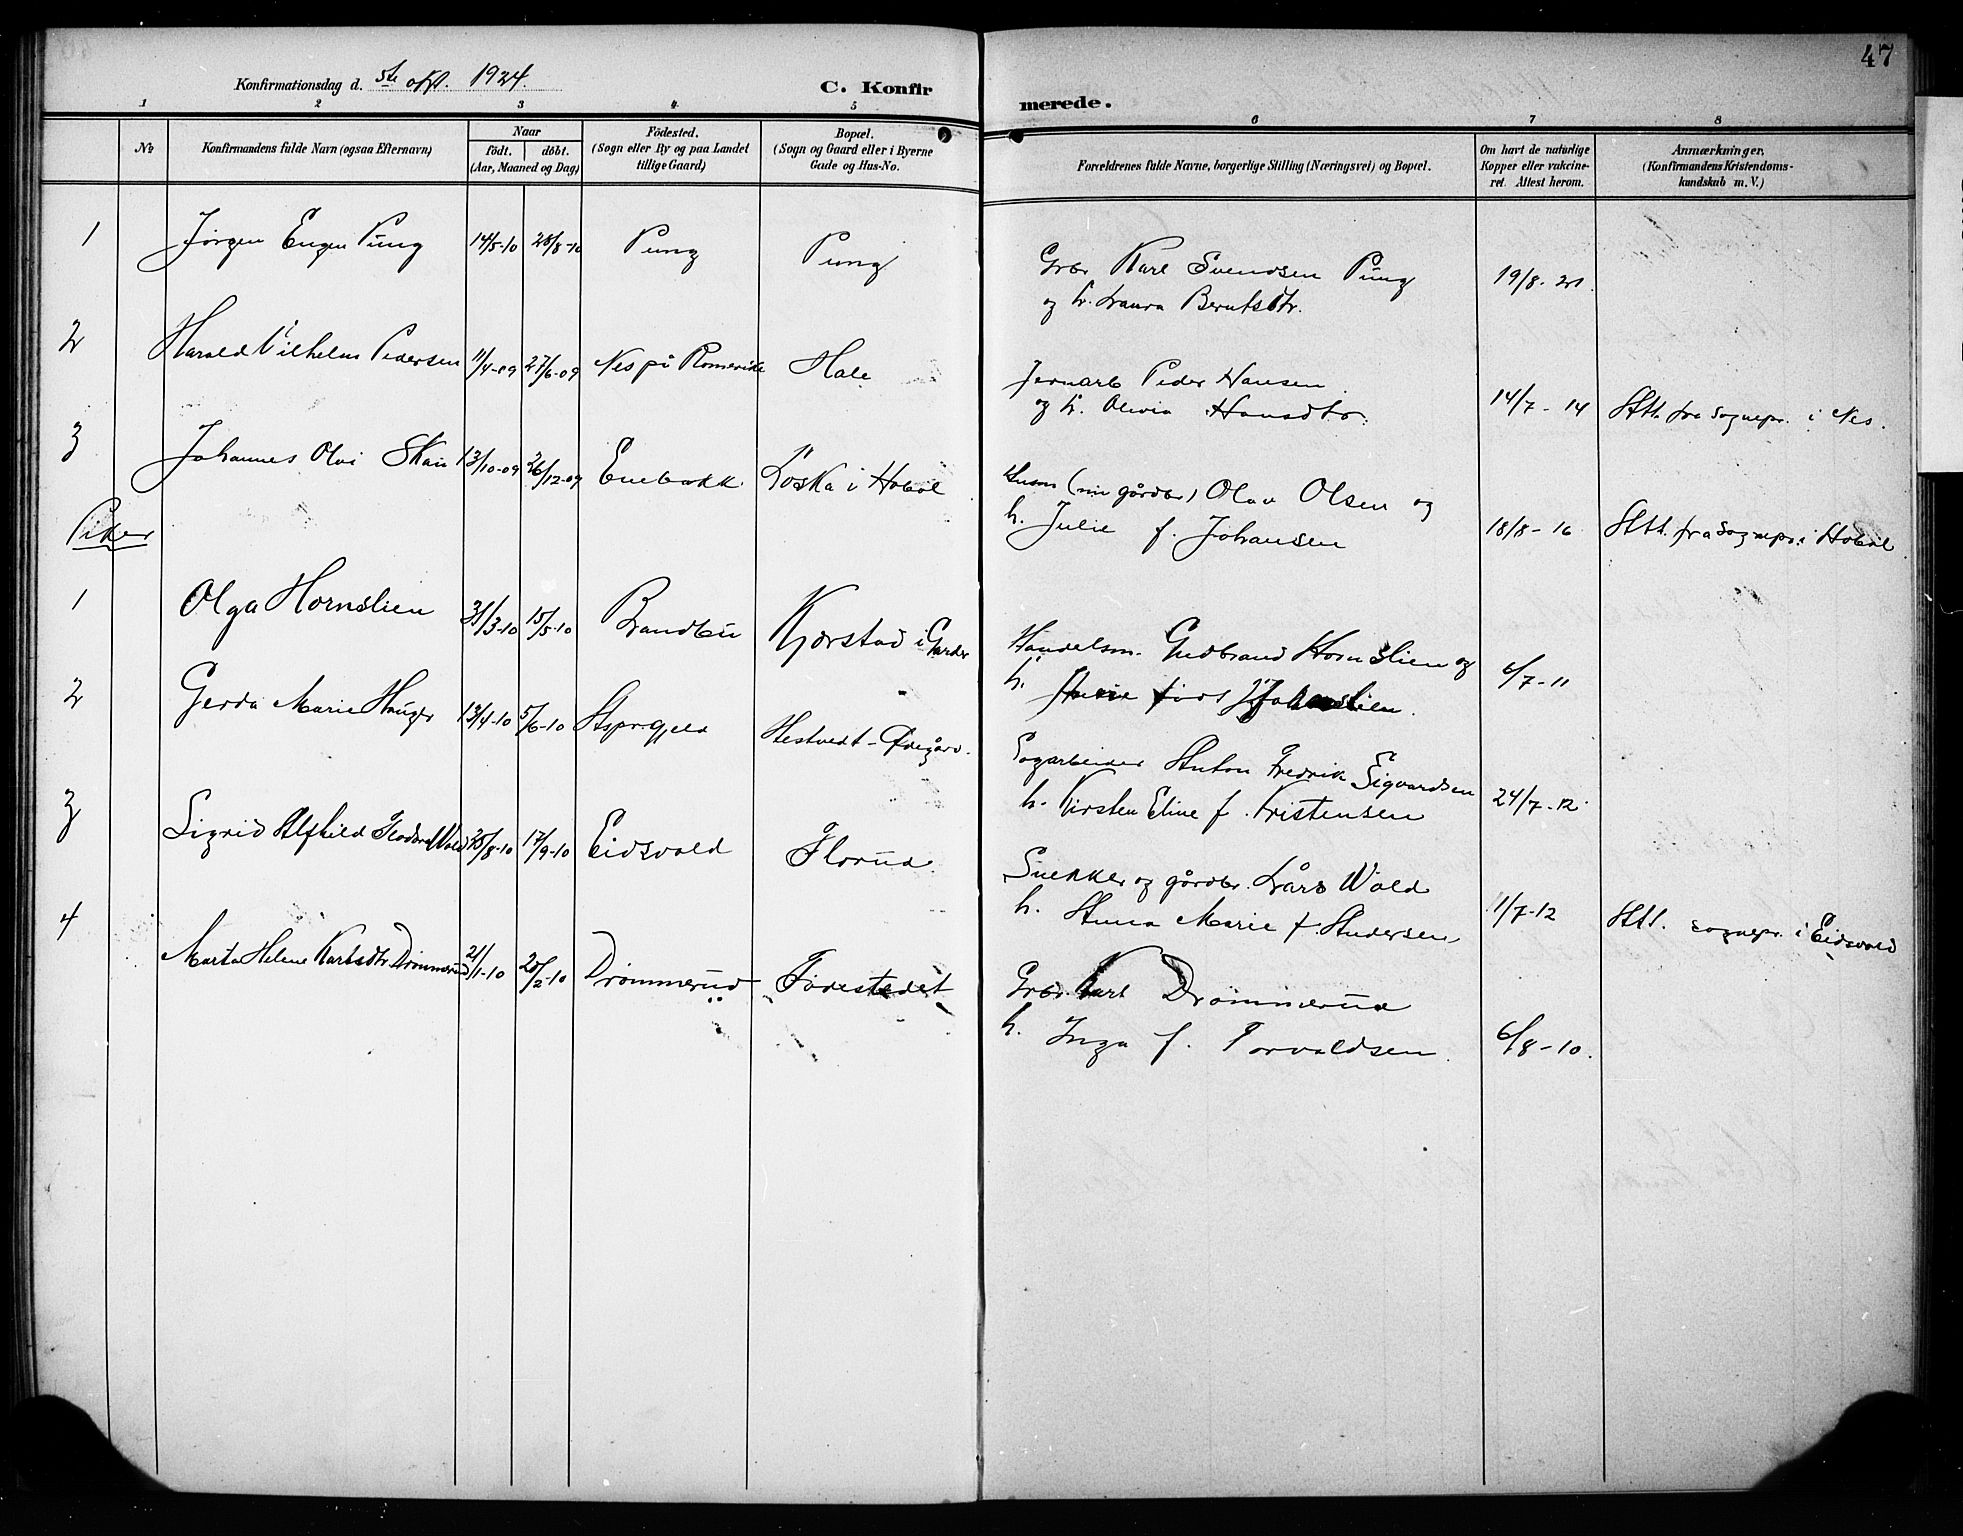 47
Konfirmationsdag d. 5te okt. 1924.
C. Konfirmerede.
1 2 3 4 5 6 7 8
No
Konfirmandens fulde Navn (ogsaa Efternavn)
Naar
födt. döbt.
(Aar, Maaned og Dag)
Födested.
(Sogn eller By og paa Landet
tillige Gaard)
Bopæl.
(Sogn og Gaard eller i Byerne
Gade og Hus-No.
Forældrenes fulde Navne, borgerlige Stilling (Næringsvei) og Bopæl.
Om havt de naturlige
Kopper eller vakcine-
ret. Attest herom.
Anmærkninger,
(Konfirmandens Kristendoms-
kundskab m. V.)
1 Jørgen Eugen Pung 14/5-10 28/8-10 Pung Pung
Grbr Karl Svendsen Pung 19/8-20
og h. Laura Berntsdtr.
2 Harald Vilhelm Pedersen 11/4-09 27/6-09 Nes på Romerike Hale
Jernarb Peder Hansen
og h. Olivia Hansdtr. 14/7-14 Att. fra sognepr. i Nes.
3 Johannes Olai Skau 13/10-09 26/12-09 Enebakk Løska i Hobøl
(nu gårdbr) Olav Olsen og
h. Julie f. Johansen 18/8-16 Att. fra sognepr. i Hobøl
Piker
1 Olga Hornslien 31/3-10 15/5-10 Brandbu Kjørstad i Garder
Handelsm. Gudbrand Hornslien og 6/7-11
h. født
2 Gerda Marie Hauger 13/4-10 5/6-10 Aspr.gjeld Hestvedt-Ødegård.
Sagarbeider Anton Fredrik Sigvardsen
h. Kirsten Eline f. Kristensen 24/7-12
3 Sigrid Alfhild Teodora Wold 25/8-10 17/9-10 Eidsvold Florud.
Snekker og gårdbr. Lårs Wold
h. Anna Marie f Andersen 11/7-12 Att. sognepr. i Eidsvold
4 Marta Helene Karlsdtr Drømmerud 21/1-10 20/2-10 Drømmerud Fødestedet
Grbr. Karl Drømmerud
h. Inga f. Torvaldsen. 6/8-10.